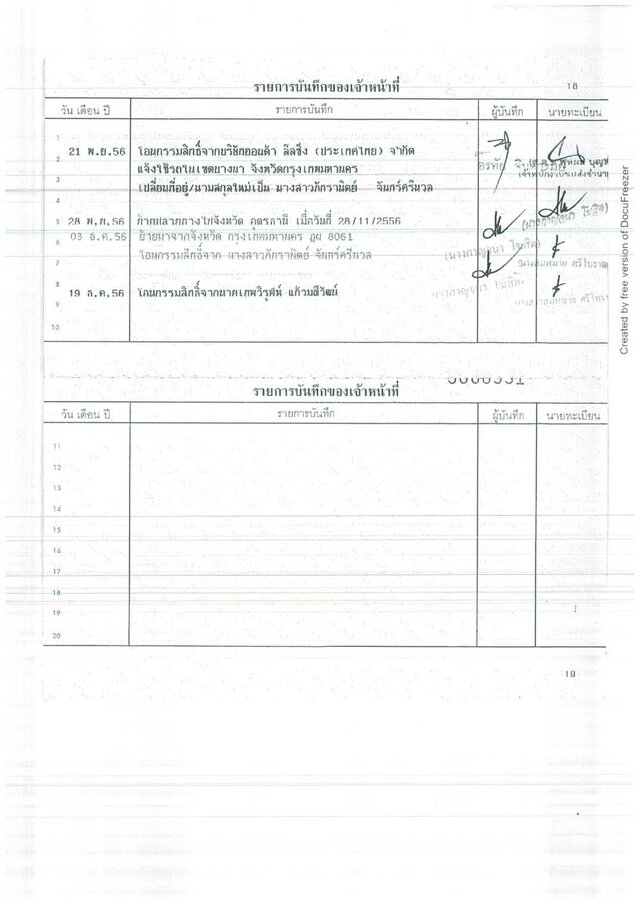 รายการบันทึกของเจ้าหน้าที่ 18
วัน เดือน ปี รายการบันทึก ผู้บันทึก นายทะเบียน
1
2 21 พ.ย.56 โอนกรรมสิทธิ์จากบริษัทฮอนด้า ลีสซิ่ง (ประเทศไทย) จำกัด
3 แจ้งใช้รถในเขตบางนา จังหวัดกรุงเทพมหานคร
4 เปลี่ยนที่อยู่/นามสกุลใหม่เป็น นางสาวภัทรานิตย์ จันทร์ศรีนวล
5 28 พ.ย.56 ย้ายปลายทางไปจังหวัด อุดรธานี เมื่อวันที่ 28/11/2556
6 03 ธ.ค.56 ย้ายมาจากจังหวัด กรุงเทพมหานคร 8061
7 โอนกรรมสิทธิ์จาก นางสาวภัทรานิตย์ จันทร์ศรีนวล
(นางกาญจนา โฆสิต)
8 19 ธ.ค.56 โอนกรรมสิทธิ์จากนายเทพวิรุฬห์
9
10
รายการบันทึกของเจ้าหน้าที่
วัน เดือน ปี รายการบันทึก ผู้บันทึก นายทะเบียน
11
12
13
14
15
16
17
18
19
20
19
Created by free version of DocuFreezer